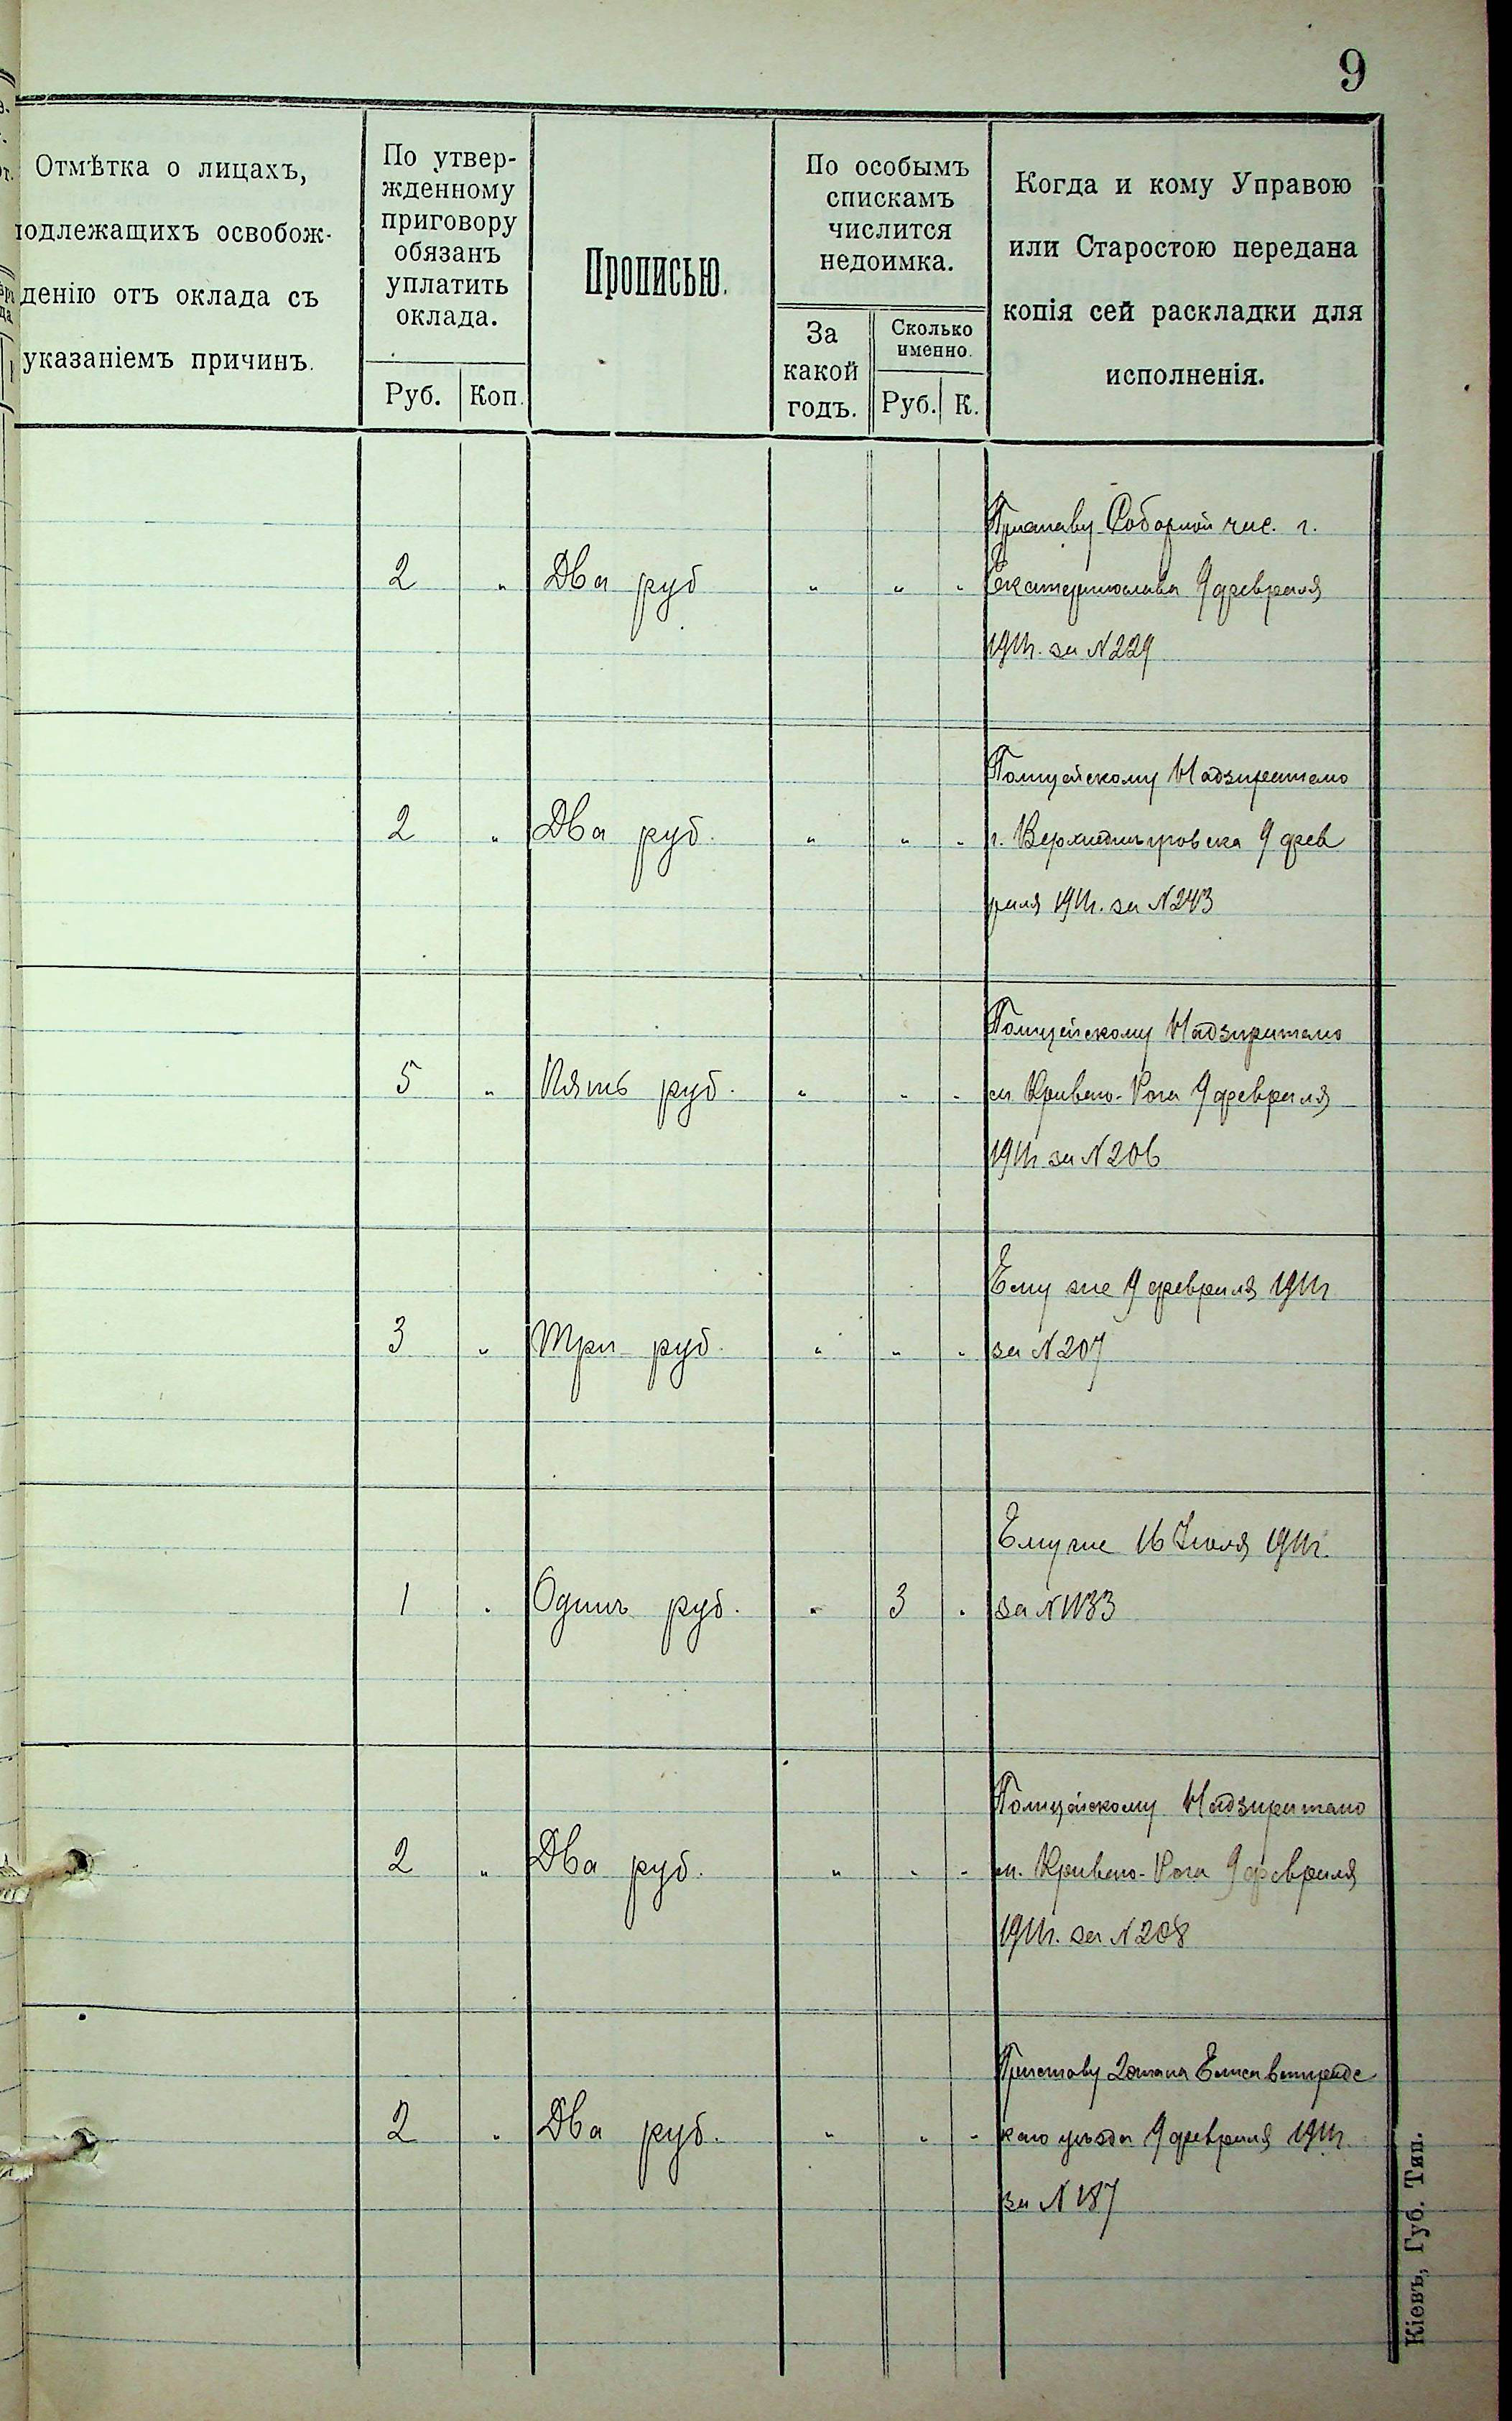 9
Отмѣтка о лицахъ,
подлежащихъ освобож-
денію отъ оклада съ
указаніемъ причинъ.
По утвер-
жденному
приговору
обязанъ
уплатить
оклада.
Руб. Коп.
Прописью.
По особымъ
спискамъ
числится
недоимка.
За
какой
годъ.
Сколько
именно.
Руб. К.
Когда и кому Управою
или Старостою передана
копія сей раскладки для
исполненія.
Приставу Соборной час. г.
2 " Два руб " " " Екатеринослава 9 февраля
1911г. за N229
Полицейскому Надзирателю
2 " Два руб. " " " г. Верхнеднѣпровска 9 фев
раля 1911г. за N243
Полицейскому Надзирателю
5 " Пять руб. " " " м Кривого-Рога 9 февраля
1911г за N206
Ему же 9 февраля 1911г
3 " Три руб. " " " за N207
Ему же 16 Іюля 1911г.
1 " Одинъ руб. " 3 " за N1133
Полицейскому Надзирателю
2 " Два руб. " " " м. Кривого-Рога 9 февраля
1911г. за N208
Приставу 2 стана Елисаветградс
2 " Два руб. " " " каго уѣзда 9 февраля 1911г.
за N187
Кіевъ, Губ. Тип.